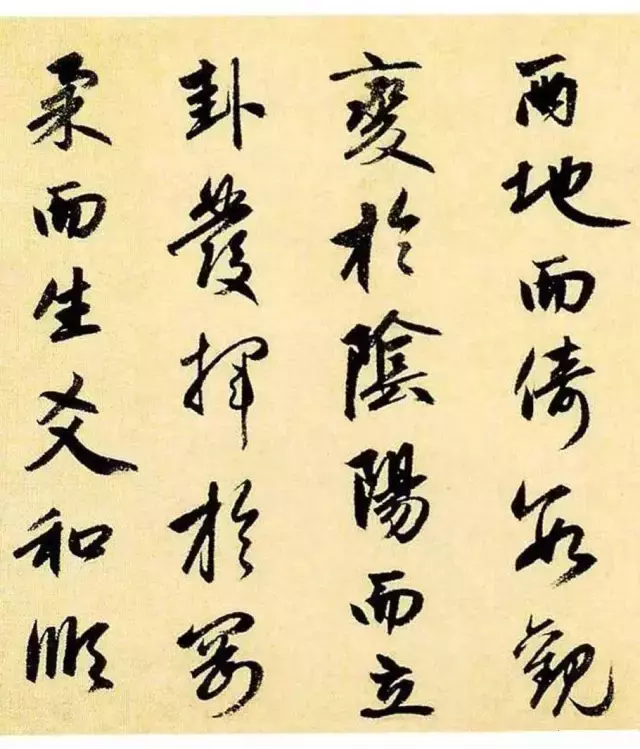 兩地而倚數觀
變於陰陽而立
卦發揮於剛
柔而生爻和順